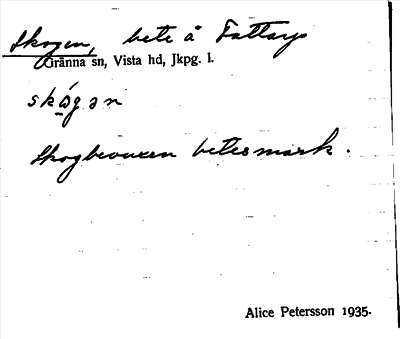 Skogen, bete å Fattarp
Gränna sn, Vista hd, Jkpg. l.
skógən
Skogbevuxen betesmark.
Alice Petersson 1935.